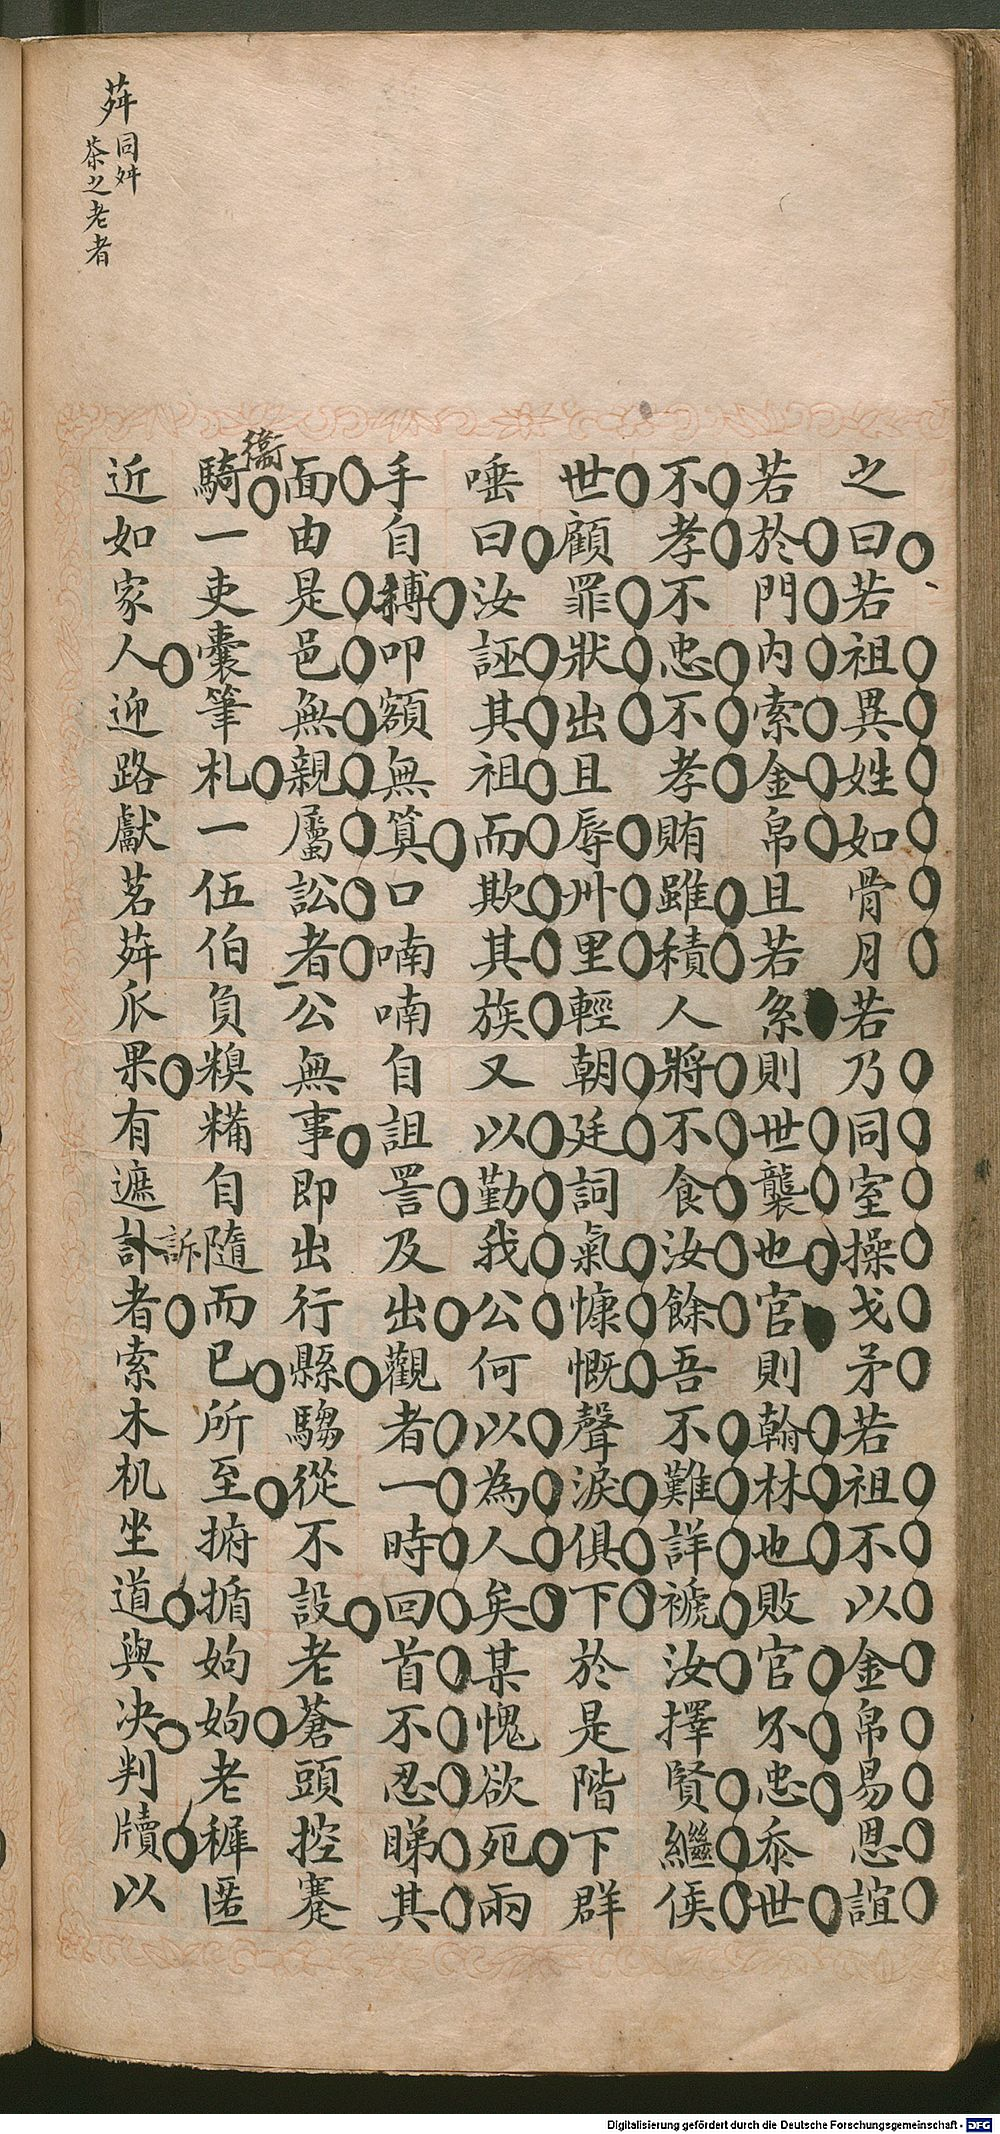 之曰若祖異姓如骨月若乃同室操戈矛若祖不以金帛易恩誼
若於門內索金帛且若糸則世襲也官則翰林也敗官不忠忝世
不孝不忠不孝賄雖積人將不食汝餘吾不難詳褫汝擇賢繼侯
世顧罪狀出且辱州里輕朝廷詞氣慷慨聲淚俱下於是階下群
唾曰汝誣其祖而欺其族又以勤我公何以為人矣某愧欲死兩
手自縛叩額無算口喃喃自詛詈及出觀者一時回首不忍睇其
面由是邑無親屬訟者公無事即出行縣騶從不設老蒼頭控蹇
衞
騎一吏囊筆札一伍伯負糗糒自隨而已所至掮揗姁姁老穉匿
訴
近如家人迎路獻茗荈瓜果有遮訃者索木机坐道與决判牘以
荈同舛
茶之老者
Digitalisierung gefördert durch die Deutsche Forschungsgemeinschaft - DFG